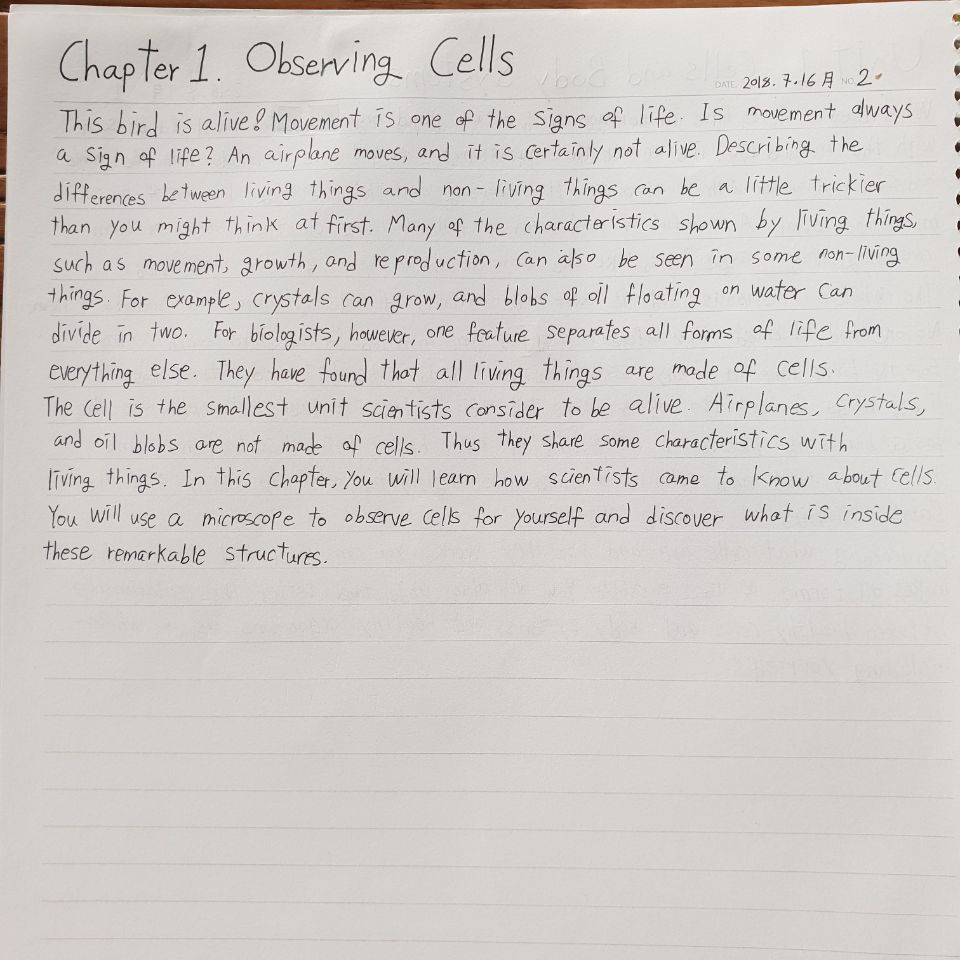 Chapter 1. Observing Cells
DATE 2018.7.16月 NO. 2
This bird is alive! Movement is one of the signs of life. Is movement always
a sign of life? An airplane moves, and it is certainly not alive. Describing the
differences between living things and non-living things can be a little trickier
than you might think at first. Many of the characteristics shown by living things,
such as movement, growth, and reproduction, can also be seen in some non-living
things. For example, crystals can grow, and blobs of oil floating on water can
divide in two. For biologists, however, one feature separates all forms of life from
everything else. They have found that all living things are made of cells.
The cell is the smallest unit scientists consider to be alive. Airplanes, crystals,
and oil blobs are not made of cells. Thus they share some characteristics with
living things. In this chapter, you will learn how scientists came to know about cells.
You will use a microscope to observe cells for yourself and discover what is inside
these remarkable structures.